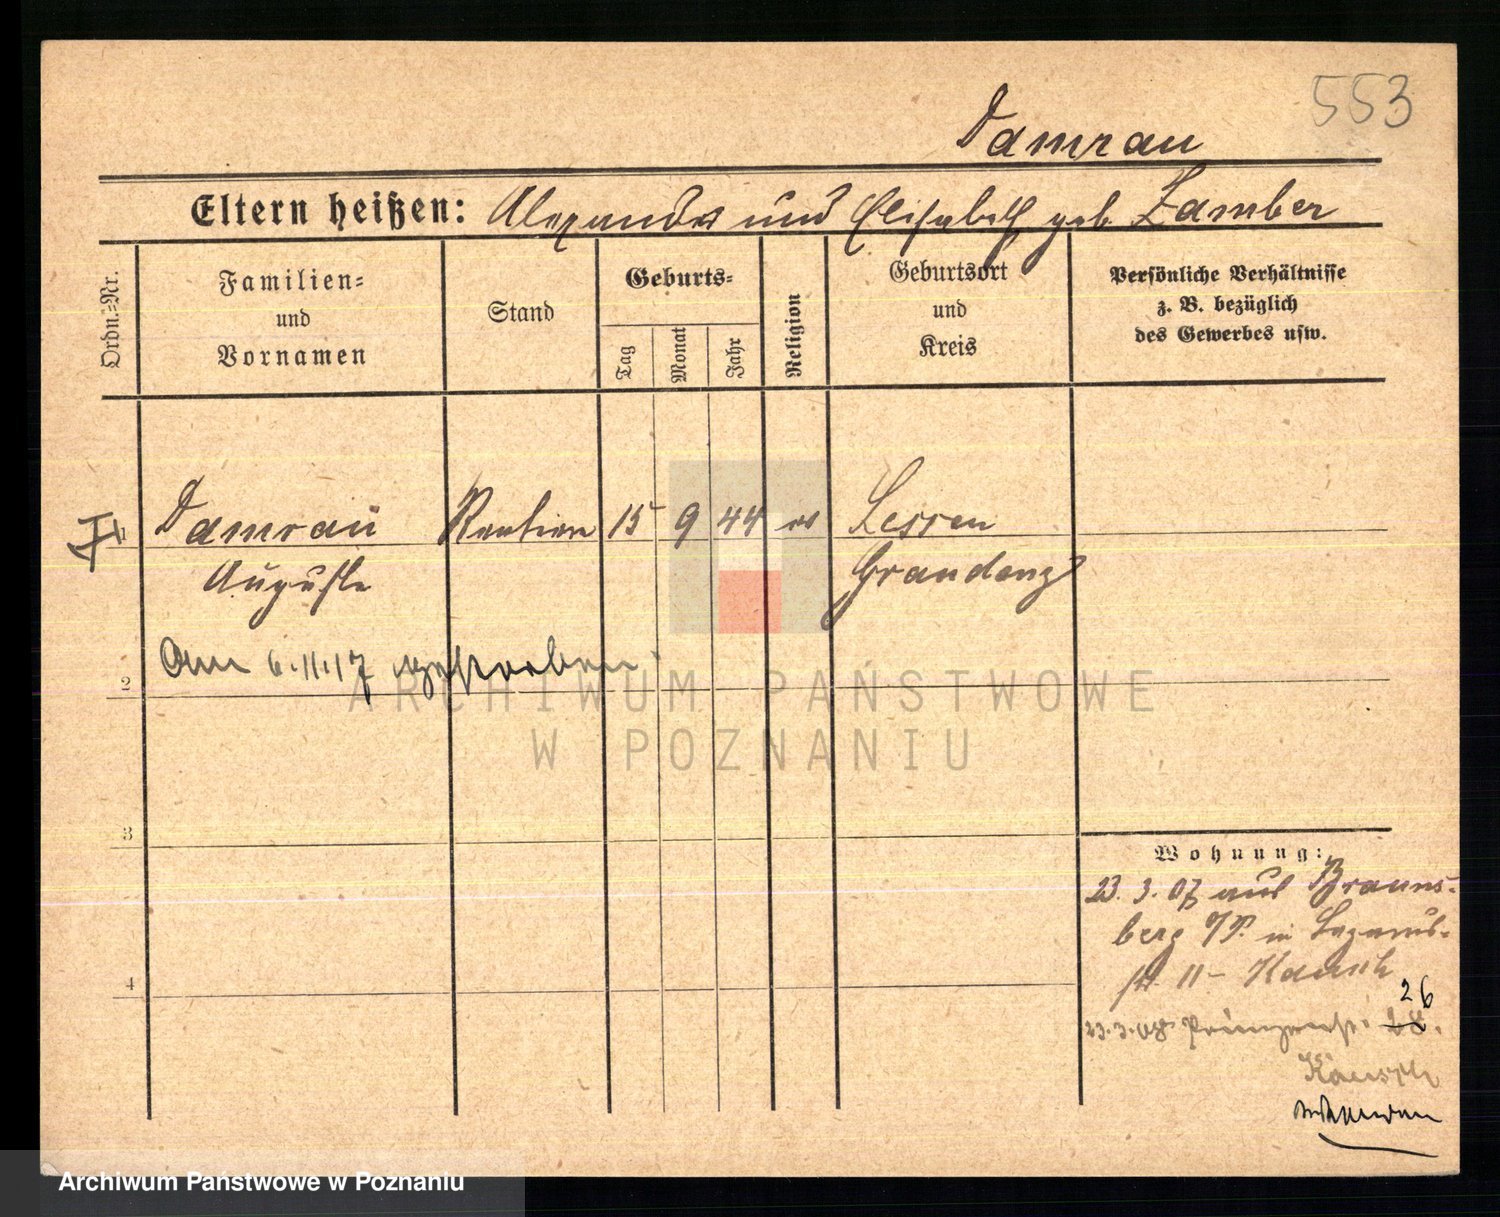 553
Damrau
Eltern heißen: Alexander und Elisabeth geb. Zamber
Ordn.=Nr.
Familien=
und
Vornamen
Stand
Geburts=
Tag
Monat
Jahr
Religion
Geburtsort
und
Kreis
Persönliche Verhältnisse
z. B. bezüglich
des Gewerbes usw.
1
Damrau Rentiere 15 9 44 ev Lessen
Auguste Graudenz
Am 6.11.17 gestorben.
2
3
4
Wohnung:
23. 3. 07 aus Brauns-
berg in Lazarus-
str. 11
23.3.08 Prinzenstr. 28. 26
ARCHIWUM PAŃSTWOWE
W POZNANIU
Archiwum Państwowe w Poznaniu